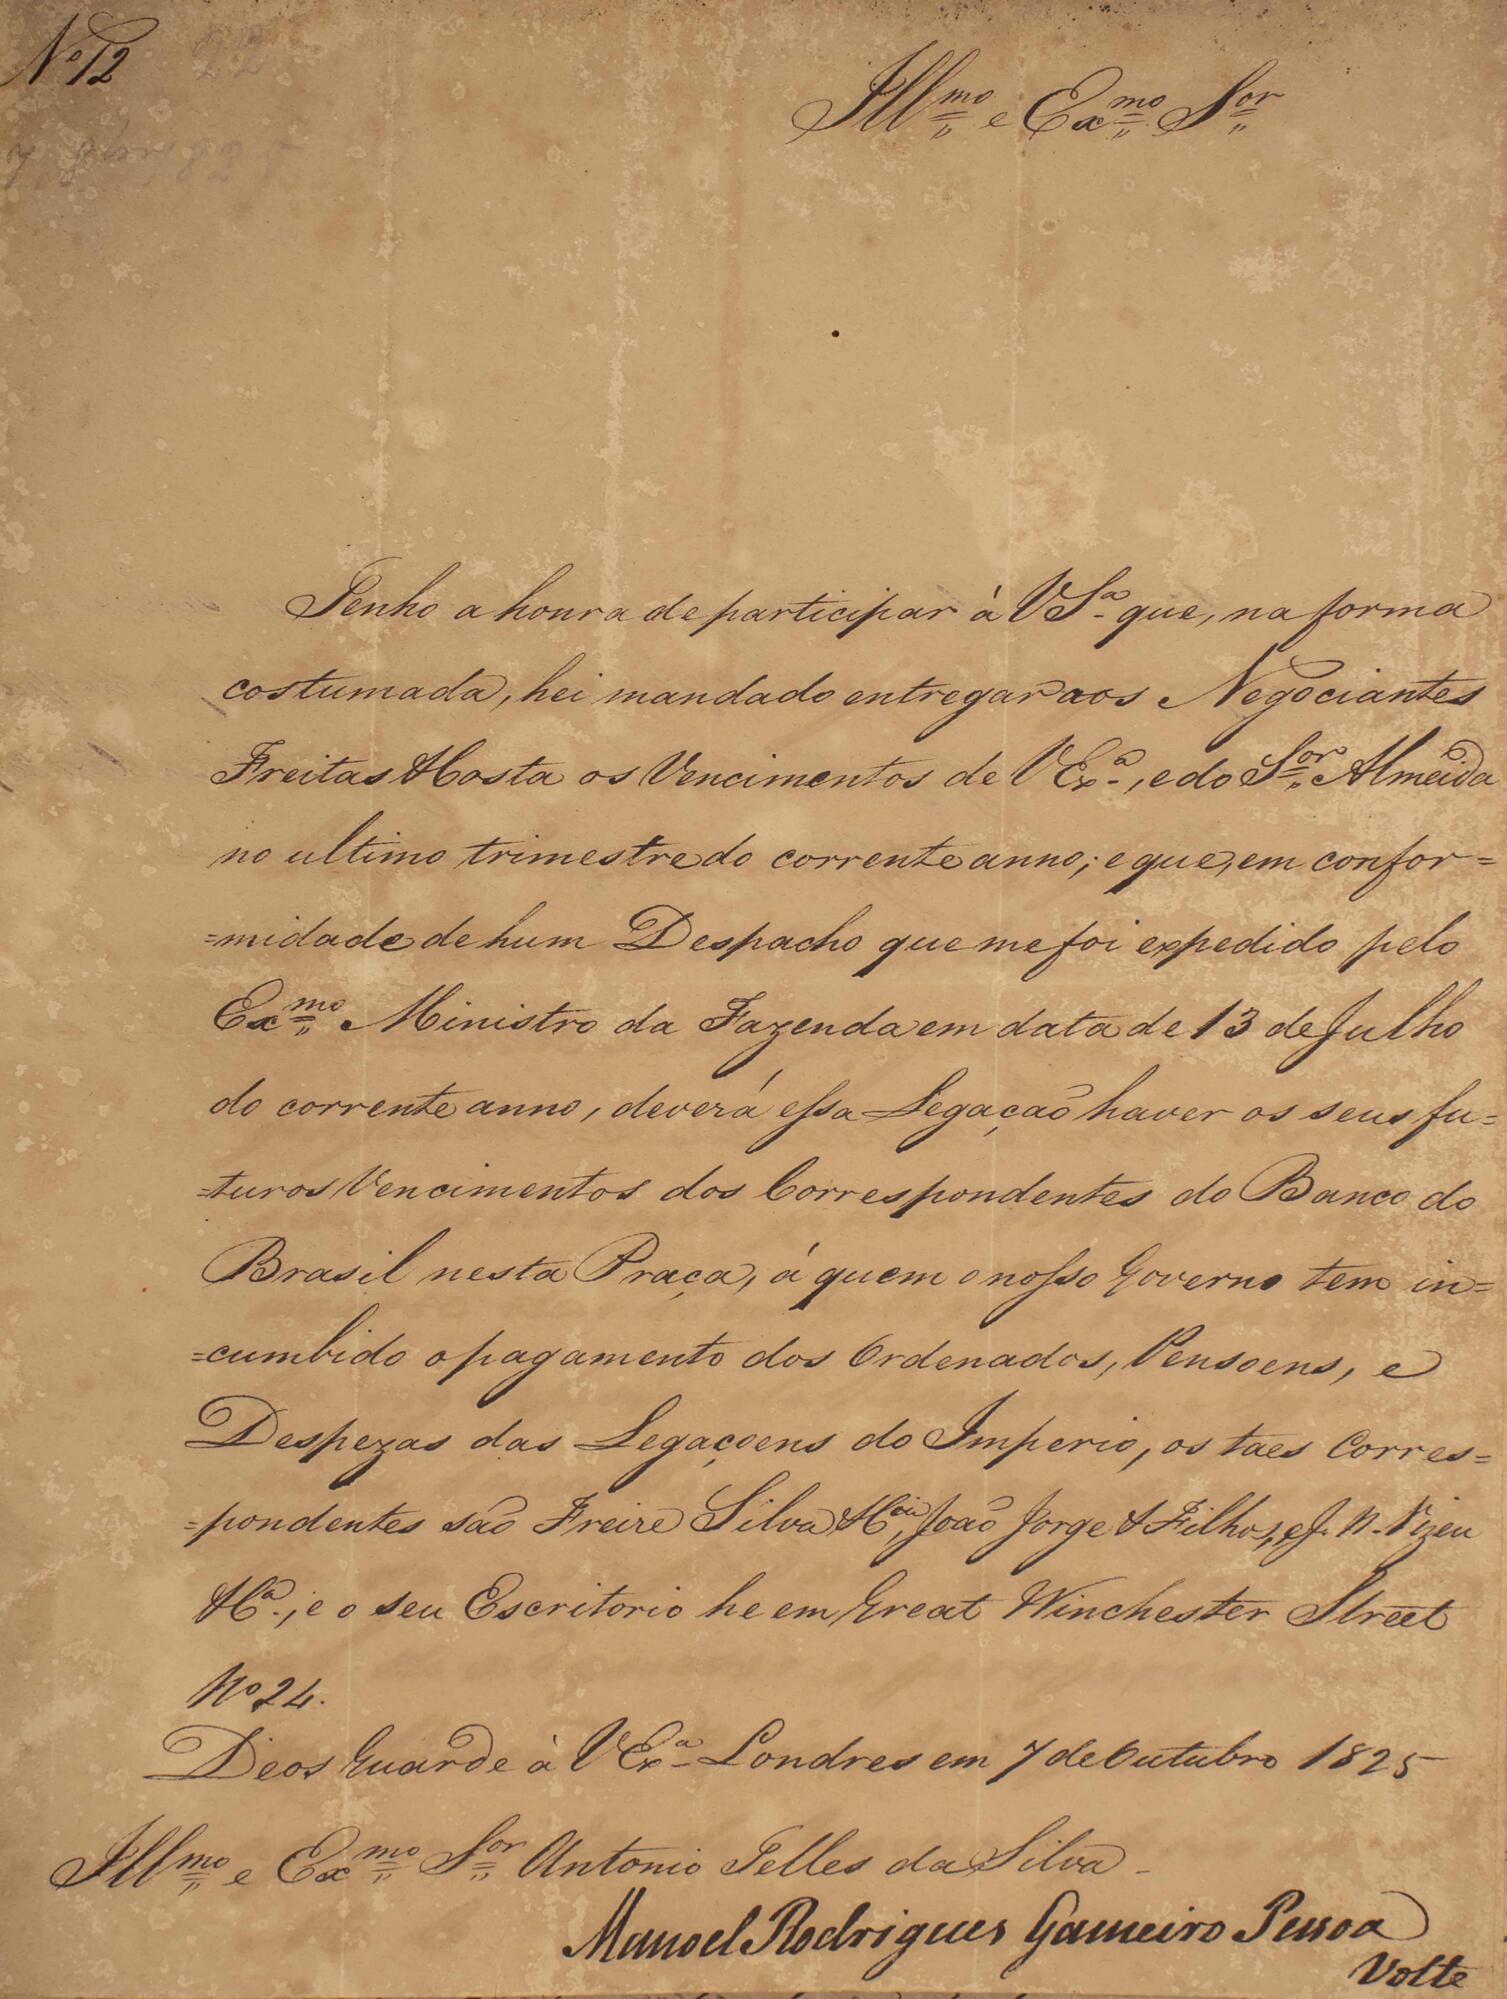 Nº 12 22
Illmo e Exmo Sor
Tenho a honra de participar à VSa que, na forma
costumada, hei mandado entregar aos Negociantes
Freitas & Costa os Vencimentos de VExa, e do Sor Almeida
no ultimo trimestre do corrente anno; e que, em confor=
=midade de hum Despacho que me foi expedido pelo
Exmo Ministro da Fazenda em data de 13 de Julho
do corrente anno, deverá essa Legação haver os seus fu=
=turos Vencimentos dos Correspondentes do Banco do
Brasil nesta Praça, á quem o nosso Governo tem in=
=cumbido o pagamento dos Ordenados, Pensoens, e
Despezas das Legaçoens do Imperio, os taes Corres=
=pondentes são Freire Silva & Cia, João Jorge & Filhos, e J. N. Vizeu
& Ca; e o seu Escritorio he em Great Winchester Street
Nº 24.
Deos Guarde à VExa Londres em 7 de Outubro 1825
Illmo e Exmo Sor Antonio Telles da Silva
Manoel Rodrigues Gameiro Pessoa
Volte